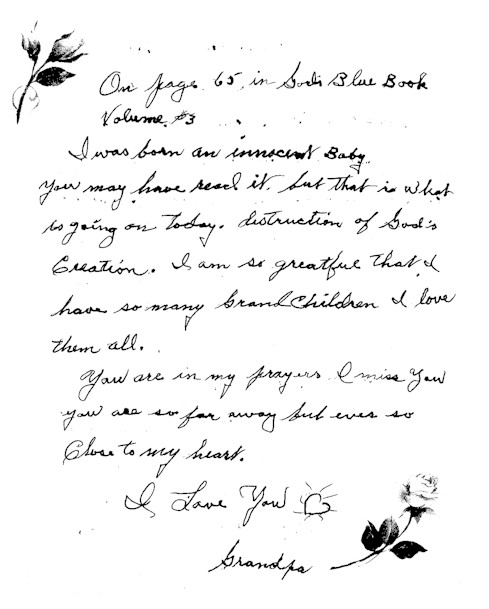 On page 65, in God's Blue Book
Volume #3
I was born an innocent Baby.
You may have read it. but that is what
is going on today. distruction of God's
Creation. I am so greatful that I
have so many GrandChildren I love
them all.
You are in my prayers I miss You
you are so far away but ever so
Close to my heart.
I Love You
Grandpa